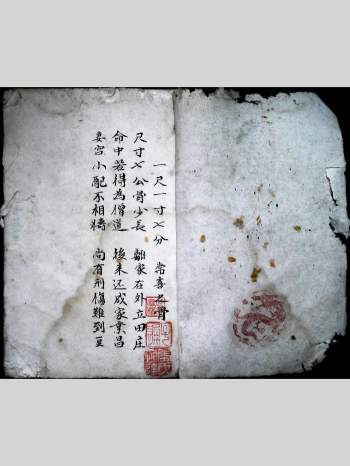 一尺一寸七分 常喜之骨
尺寸七公骨少長 離家在外立田庄
命中若得為僧道 後來还成家業昌
妻宮小配不相梼 尚有刑傷難到豆